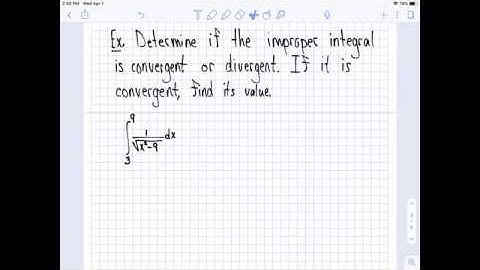 2:50 PM Wed Apr 1
Ex. Determine if the improper integral
is convergent or divergent. If it is
convergent, find its value.
∫₃⁹ 1/√(x²-9) dx